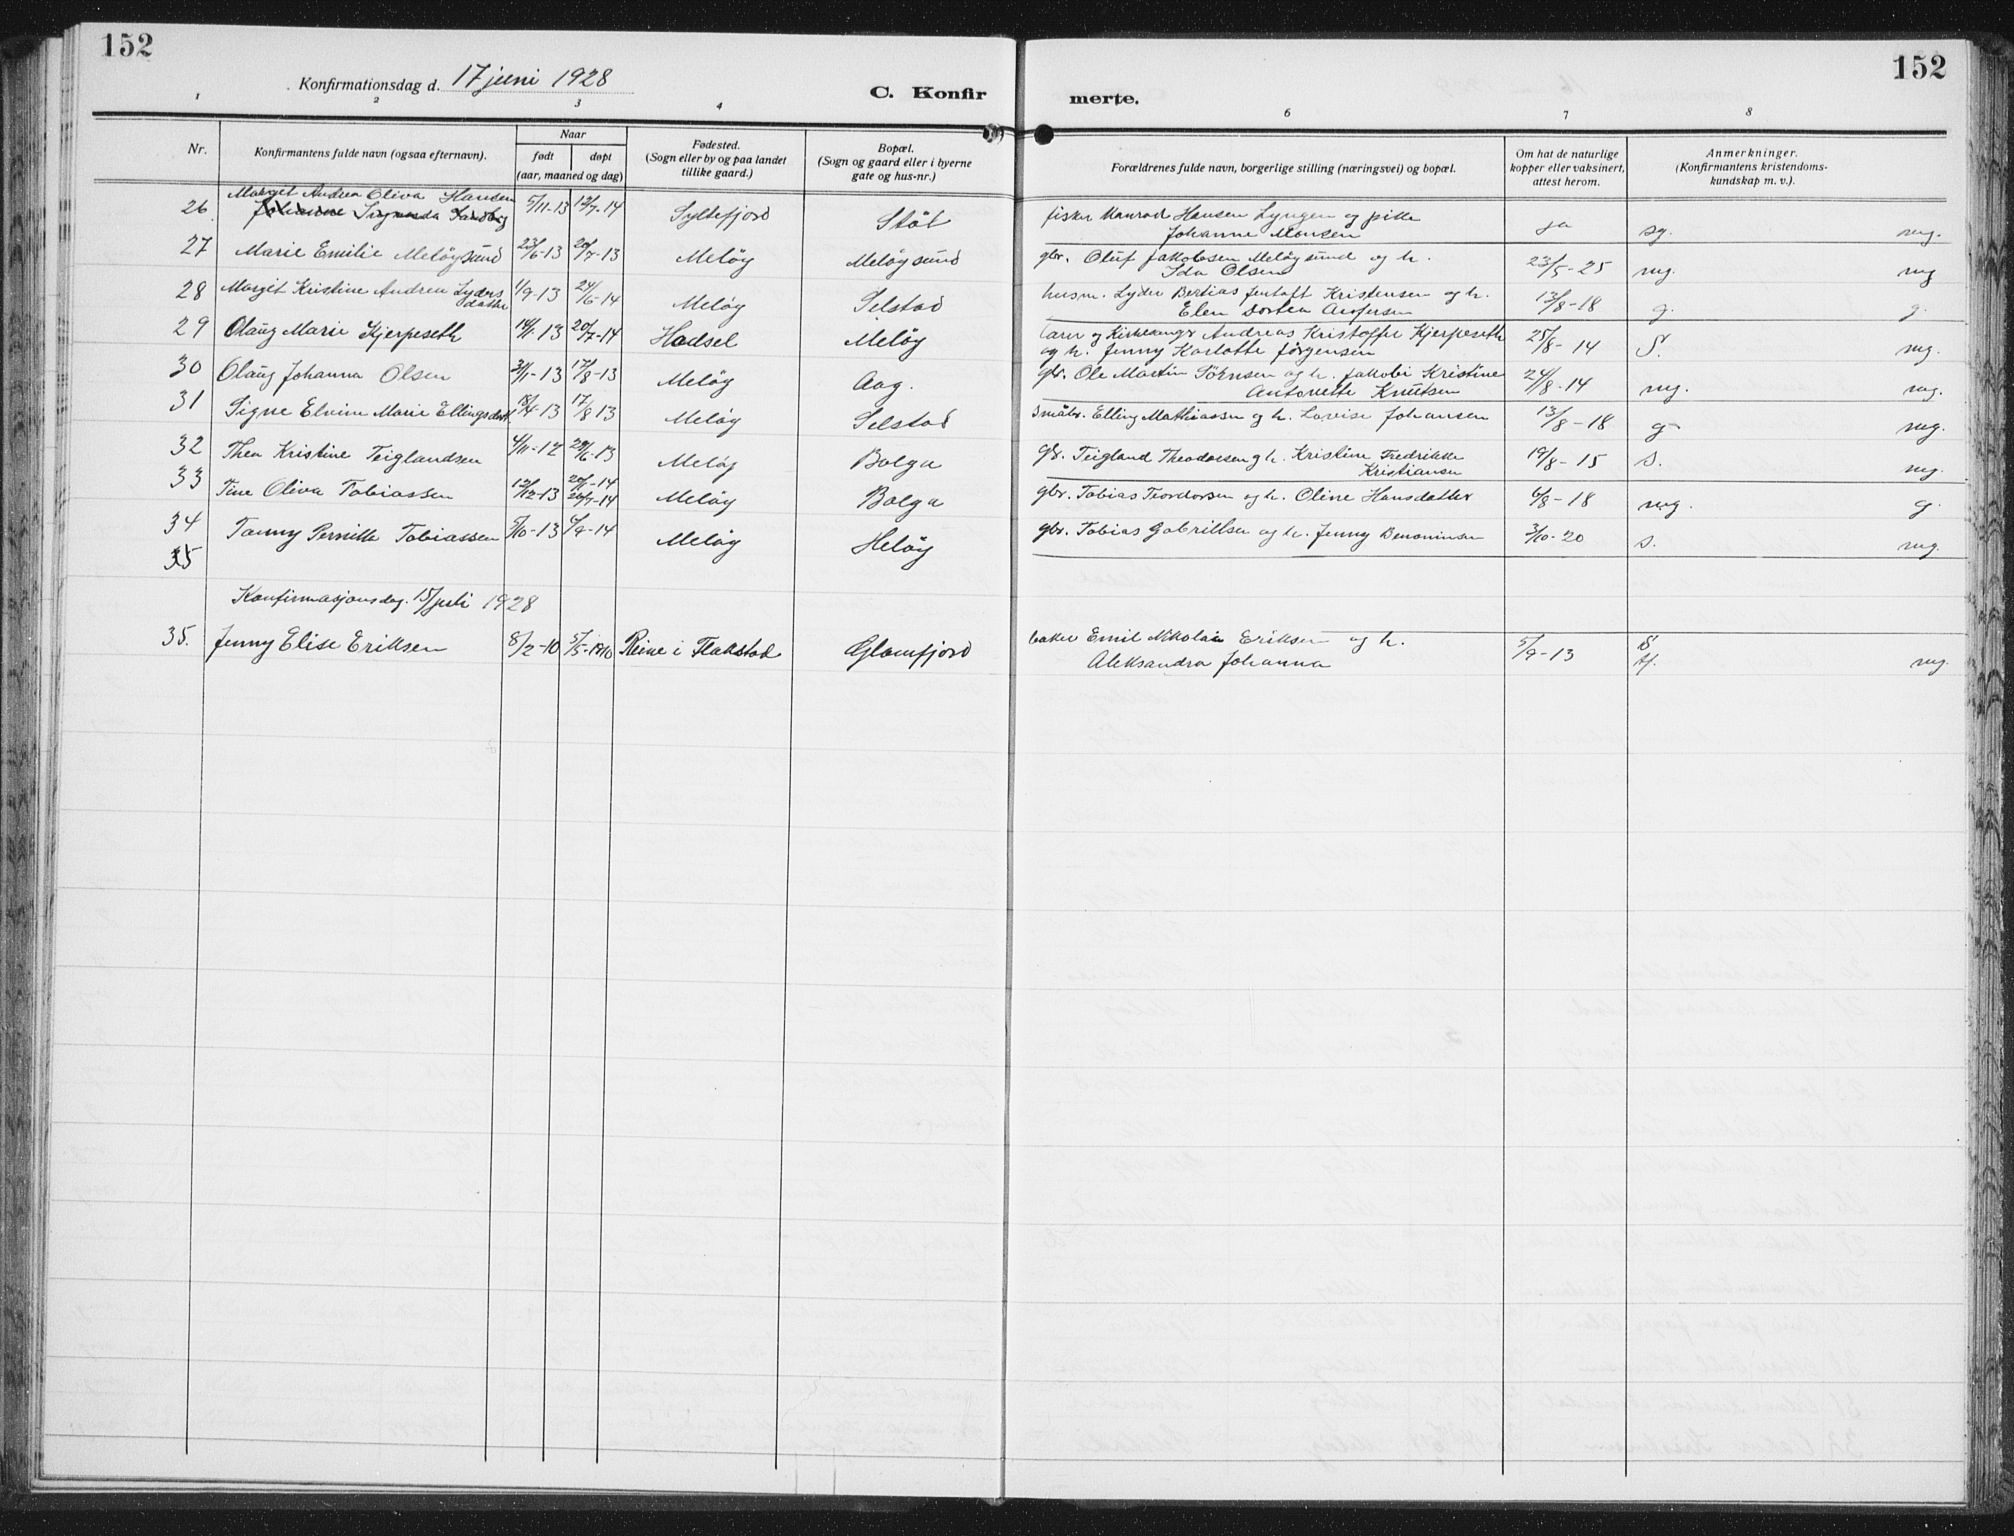 152
Konfirmationsdag d. 17 juni 1928
C. Konfir
merte.
152
1 2 3 4 6 7 8
Nr.
Konfirmantens fulde navn (ogsaa efternavn).
Naar
født
døpt
(aar, maaned og dag)
Fødested.
(Sogn eller by og paa landet
tillike gaard.)
Bopæl.
(Sogn og gaard eller i byerne
gate og hus-nr.)
Forældrenes fulde navn, borgerlige stilling (næringsvei) og bopæl.
Om hat de naturlige
kopper eller vaksinert,
attest herom.
Anmerkninger.
(Konfirmantens kristendoms-
kundskap m. v.).
Margit Andrea Oliva Hansen
26 5/11-13 12/7-14 Syltefjord Støt fisker Hansen Lyngen og pike
Johanne Monsen ja sg. mg.
27 Marie Emilie Meløysund 23/6-13 20/7-13 Meløy Meløysund gbr. Oluf Jakobsen Meløysund og h.
Ida Olsen 23/5-25 mg. mg
28 Margit Kristine Andrea Lyders
datter 1/9-13 24/6-14 Meløy Selstad husm. Lyder Bertias Jentoft Kristensen og h.
Elen Dortea 13/8-18 g. g.
29 Olaug Marie Kjerpeseth 14/1-13 20/7-14 Hadsel Meløy lærer og Kirkesanger Andreas Kristoffer Kjerpeseth
og h. Jenny Karlotte Jørgensen 25/8-14 S. mg.
30 Olaug Johanna Olsen 21/1-13 17/8-13 Meløy Aag. gbr. Ole Martin Sörnsen og h. Jakobi Kristine
Antonette Knutsen 24/8-14 mg. mg.
31 Signe Elvine Marie Ellingsdatt. 18/4-13 17/8 13 Meløy Selstad Småbr. Elling Mathiassen og h. Lovise Johansen 13/8-18 g mg.
32 Thea Kristine Teiglandsen 4/11-12 29/6-13 Meløy Bolga gbr. Teigland Theodorsen og h. Kristine Fredrikke
Kristiansen 19/8-15 s. mg.
33 Tine Oliva Tobiassen 12/12-13 20/7-14 Meløy Bolga gbr. Tobias Teordorsen og h. Oline Hansdatter 6/8-18 mg. g.
34 Tanny Pernille Tobiassen 5/10-13 6/9-14 Meløy Meløy gbr. Tobias Gabrillsen og h. Jenny Benoninsen 3/10-20 s. mg.
35
Konfirmasjonsdag. 15/juli 1928
35. Jenny Elise Eriksen 8/2-10 5/5-1910 Reine i Flakstad Glomfjord baker Emil Nikolai Eriksen og h.
Aleksandra Johanna 5/9-13 S
tf. mg.